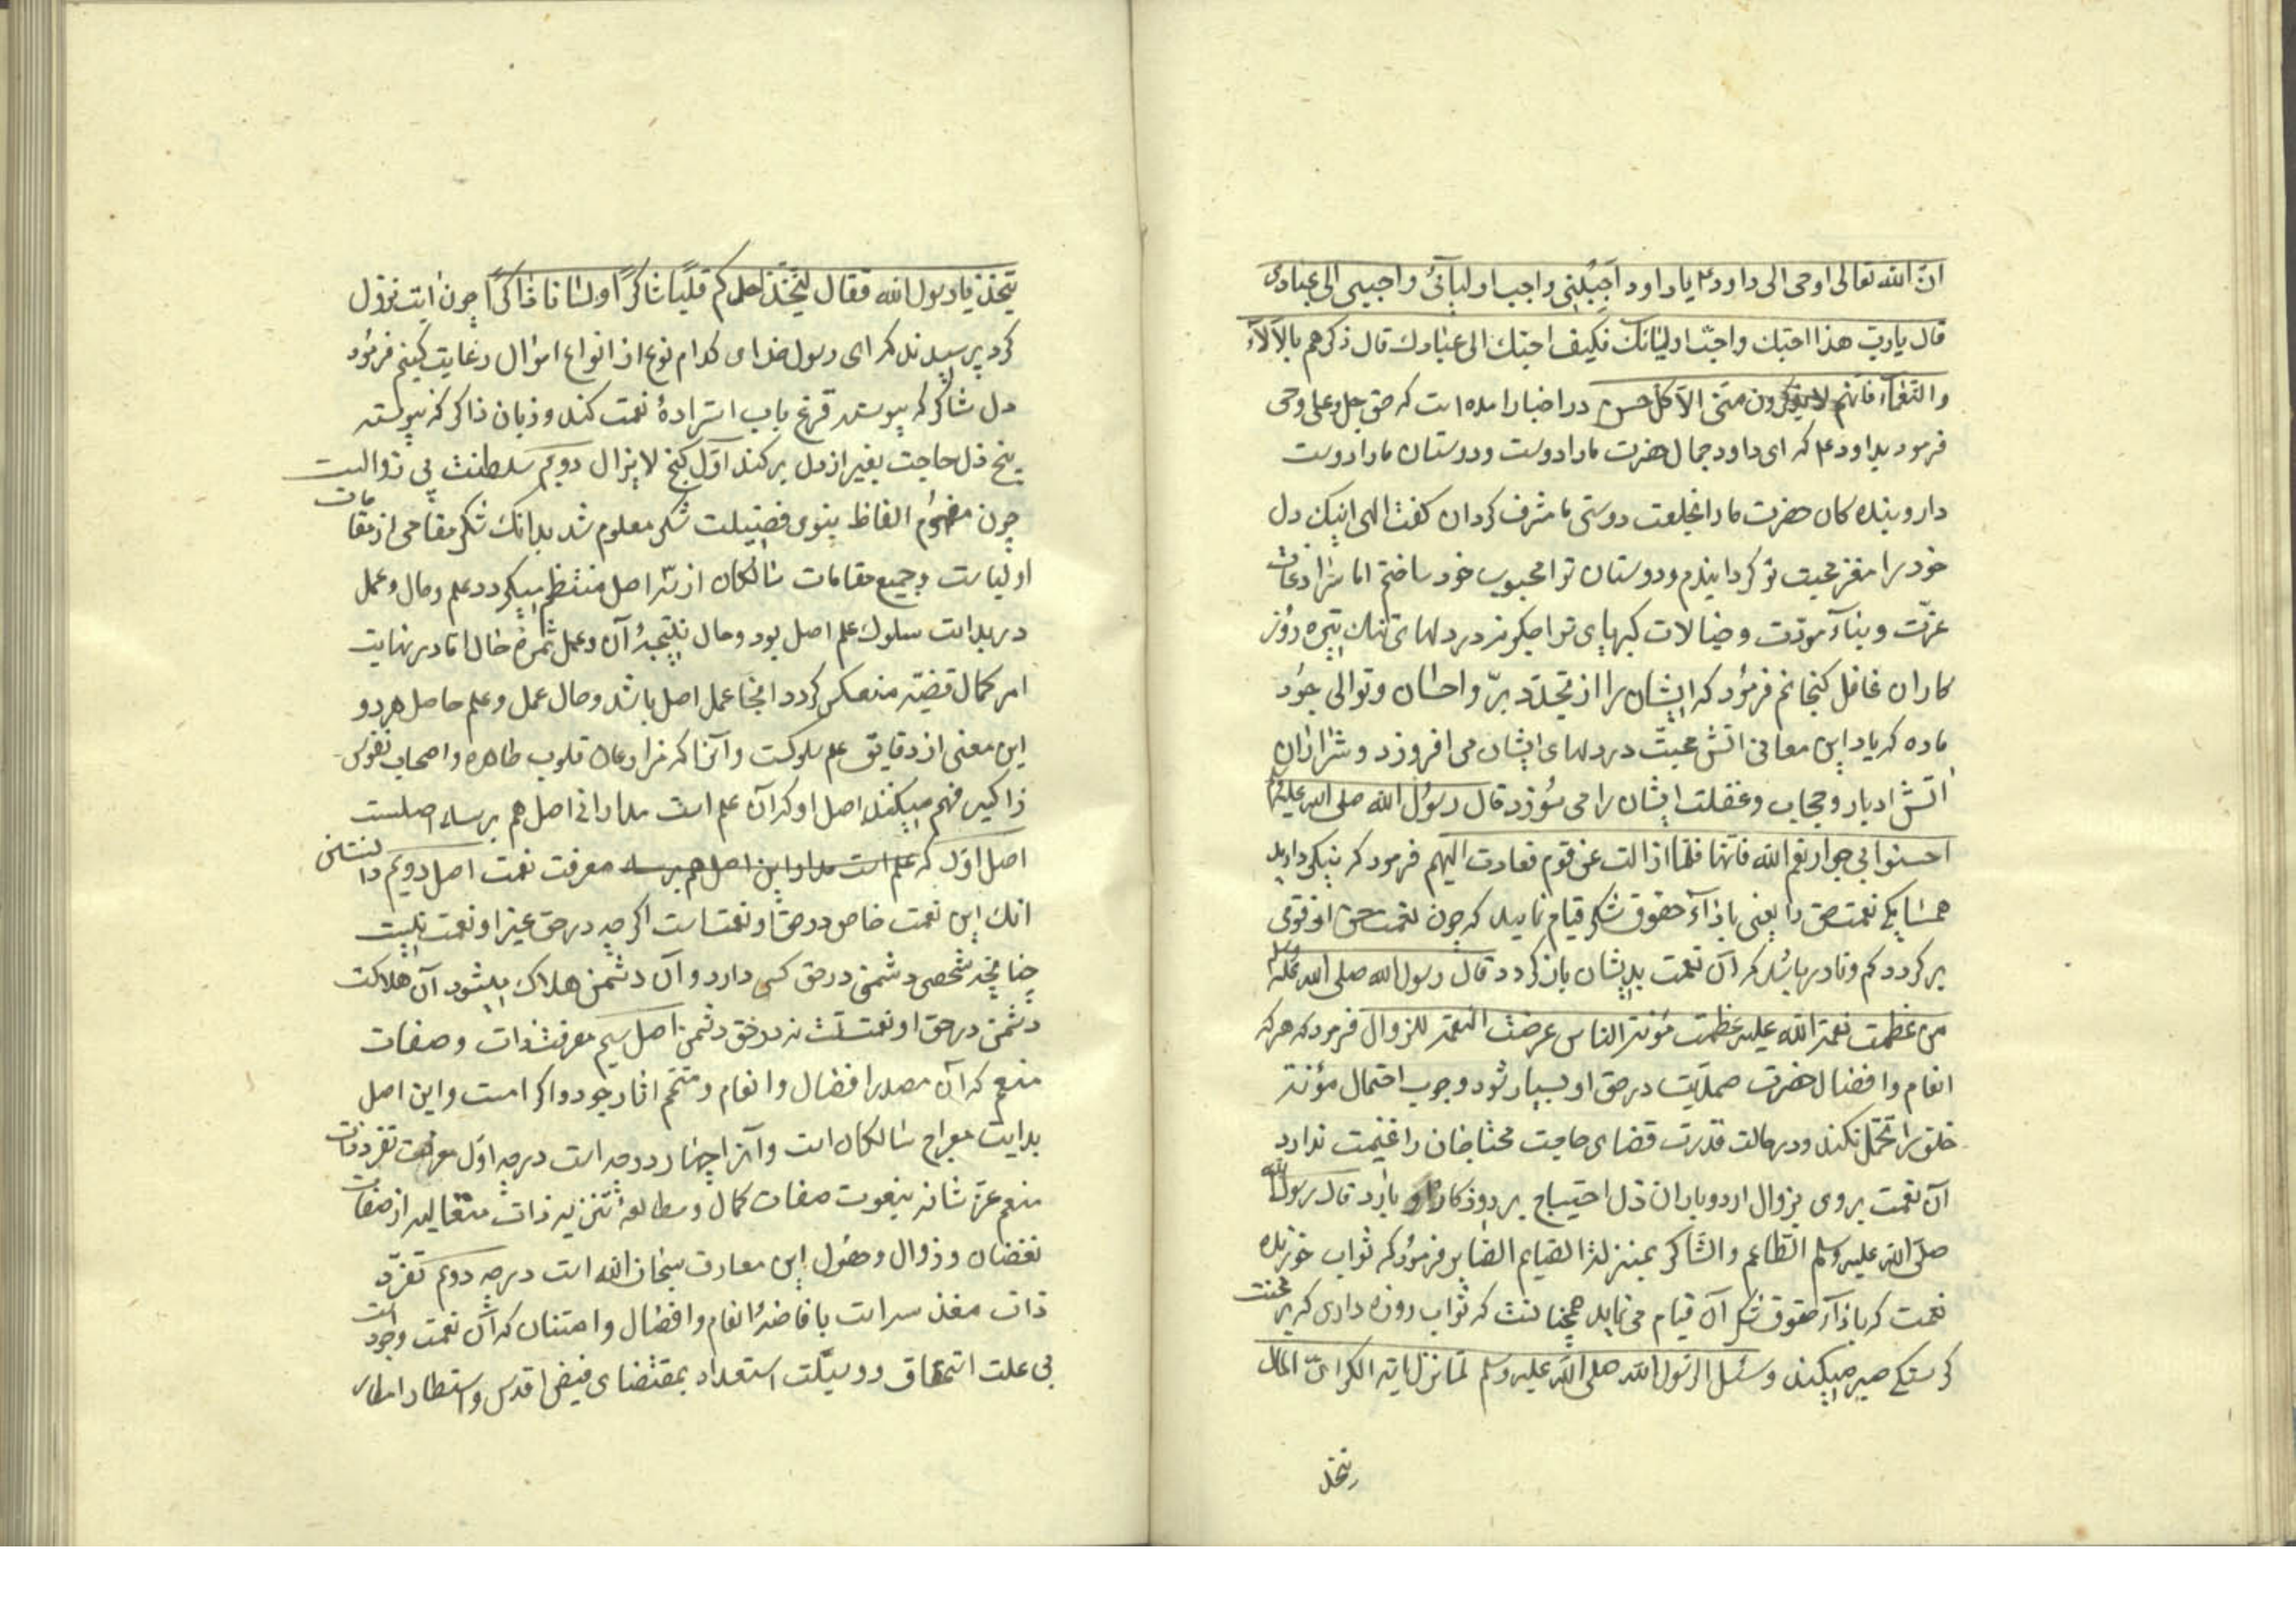 ان الله تعالی اوحی الی داود ع یا داود احببنی واحب اولیائی واحببنی الی عبادی
قال یا رب هذا احبك واحب اولیائك فکیف احبك الی عبادك قال ذکرهم بالآلاء
والنعماء فانهم لا یذکرون منی الا کل حسن در اخبار امده است که حق جل وعلی وحی
فرمود بداود ع که ای داود جمال حضرت ما را دوست ودوستان ما را دوست
دار وبنده کان حضرت ما را بخلعت دوستی ما مشرف کردان کفت الهی اینك دل
خود را مقر محبت تو کردانیدم ودوستان ترا محبوب خود ساختم اما
عزت وبناء مودت وخیالات کبریای ترا چکونه در دلهای تیره روز
کاران غافل کنجانم فرمود که ایشان را از تجدد بر واحسان وتوالی جود
ما ده که یاد این معانی اتش محبت در دلهای ایشان می افروزد وشرار ان
اتش ادبار وحجاب وغفلت ایشان را می سوزد قال رسول الله صلی الله علیه
احسنوا فی جوار نعم الله فانها قلما زالت عن قوم فعادت الیهم فرمود که نیکی دارید
همسایکی نعمت حق را یعنی باداء حقوق شکر قیام نمایید که چون نعمت حق از قومی
بر کردد کم ونادر باشد که آن نعمت بدیشان باز کردد قال رسول الله صلی الله علیه وسلم
من عظمت نعمة الله علیه عظمت مؤنة الناس عرضت النعمة للزوال فرمود که هر که
انعام وافضال حضرت صمدیت در حق او بسیار شود وجوب احتمال مؤنة
خلق را تحمل نکند ودر حالت قدرت قضای حاجت محتاجان را غنیمت ندارد
آن نعمت بروی بزوال ارد وباران ذل احتیاج بر روزکار او بارد قال رسول الله
صلی الله علیه وسلم الطاعم والشاکر بمنزلة الصایم الصابر فرمود که ثواب خورنده
نعمت که باداء حقوق شکر آن قیام می نماید همچنانست که ثواب روزه داری که بر محنت
کرسنکی صبر میکند وسئل الرسول الله صلی الله علیه وسلم لما نزل ایة الکرای المال
یتخذ
یتخذ یا رسول الله فقال لیتخذ احدکم قلبا شاکرا ولسانا ذاکرا چون ایت نزول
کرد پرسیدند که ای رسول خدای کدام نوع از انواع اموال رعایت کنیم فرمود
دل شاکر که پیوسته قرع باب استزادهٔ نعمت کند وزبان ذاکر که پیوسته
بیخ ذل حاجت بغیر از دل بر کند اول کنج لا یزال دویم سلطنت بی زوالیست
چون مفهوم الفاظ نبوی فضیلت شکر معلوم شد بدانك شکر مقامی از مقامات
اولیاست وجمیع مقامات سالکان از سه اصل منتظم میکردد علم وحال وعمل
در بدایت سلوك علم اصل بود وحال نتیجهٔ آن وعمل ثمرهٔ حال اما در نهایت
امر کمال قضیه منعکس کردد انجا عمل اصل باشد وحال عمل وعلم حاصل هر دو
این معنی از دقایق علم سلوکست وآنرا که قلوب طاهره واصحاب نفوس
زاکیه فهم میکنند اصل او که آن علم است مدار این اصل هم بر سه اصلست
اصل اول که علم است مدار این اصل هم بر سه معرفت نعمت اصل دویم دانستن
انك این نعمت خاص در حق او نعمتست اکرچه در حق غیر او نعمت نیست
چنانچه شخصی دشمنی در حق کسی دارد وآن دشمن هلاك میشود آن هلاکت
دشمن در حق او نعمتست نه در حق دشمن اصل سیم معرفت ذات وصفات
منعم که آن مصدر افضال وانعام ومتمم اثار جود واکرامست واین اصل
بدایت معراج سالکان است وآنرا چهار درجه است درجه اول معرفت تفرد ذات
منعم عز شانه بنعوت صفات کمال ومطالعهٔ تنزیه ذات متعالیه از صفات
نقصان وزوال وحصول این معارف سبحان الله است درجه دویم تفرد
ذات مقدسه است بافاضهٔ انعام وافضال وامتنان که آن نعمت وجود است
بی علت استحقاق ووسیلت استعداد بمقتضای فیض اقدس واستطار امطار